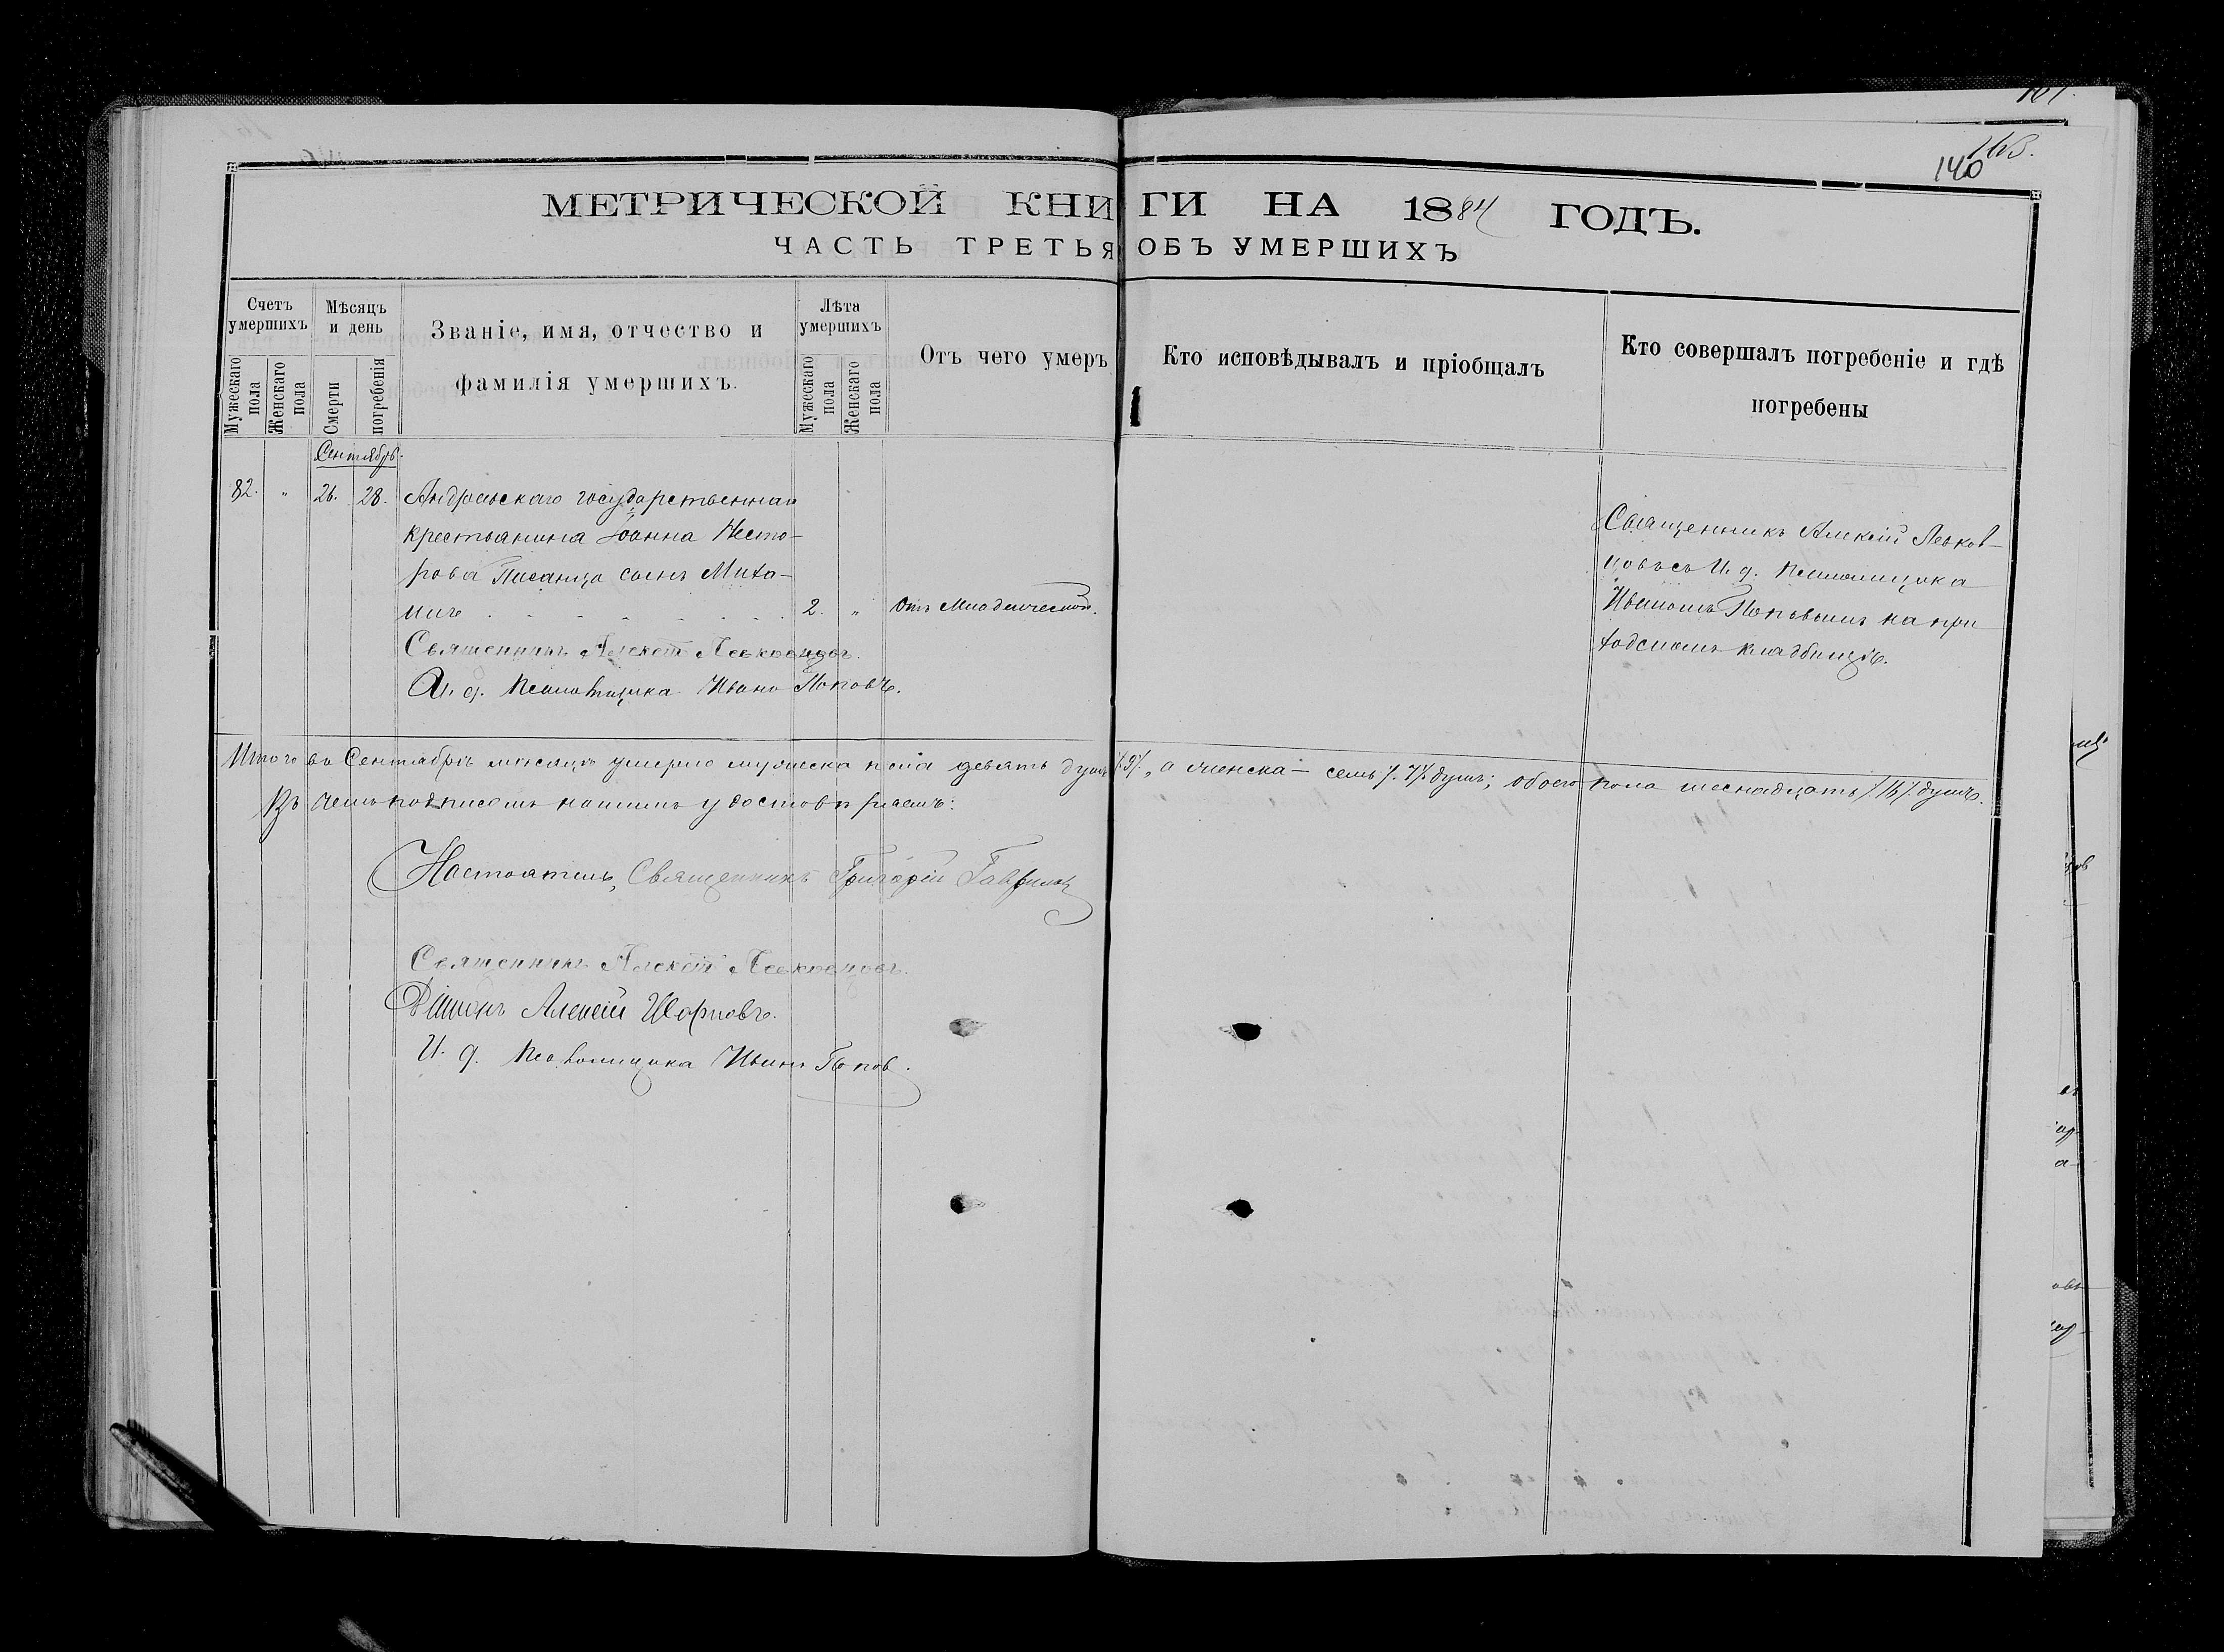 140
МЕТРИЧЕСКОЙ КНИГИ НА 1884 ГОДЪ.
ЧАСТЬ ТРЕТЬЯ ОБЪ УМЕРШИХЪ
Счетъ умершихъ
Мужескаго пола
Женскаго пола
Мѣсяцъ и день
Смерти
погребенія
Званіе, имя, отчество и
фамилія умершихъ.
Лѣта умершихъ
Мужескаго пола
Женскаго пола
Отъ чего умеръ
Кто исповѣдывалъ и пріобщалъ
Кто совершалъ погребеніе и гдѣ
погребены
Сентябрь
82. " 26. 28. государственнаго
крестьянина Іоанна Несто-
рова Писанца сынъ Миха-
илъ 2. " Отъ Младенческой.
Священникъ Алексѣй Левковцовъ.
И. д. Псаломщика Иванъ Поповъ.
Священникъ Алексій Левков-
цовъ съ И. д. Псаломщика
Иваномъ Поповымъ на при
ходскомъ кладбищѣ.
Итого въ Сентябрѣ мѣсяцѣ умерло мужеска пола девять душъ /.9/., а женска — семь /.7/. душъ; обоего пола шеснадцать /.16/. душъ.
Въ чемъ подписомъ нашимъ удостовѣряемъ:
Настоятель, Священникъ Григорій Гаврилов
Священникъ Алексѣй Левковцовъ.
Діаконъ Алексій
И. д. Псаломщика Иванъ Попов.